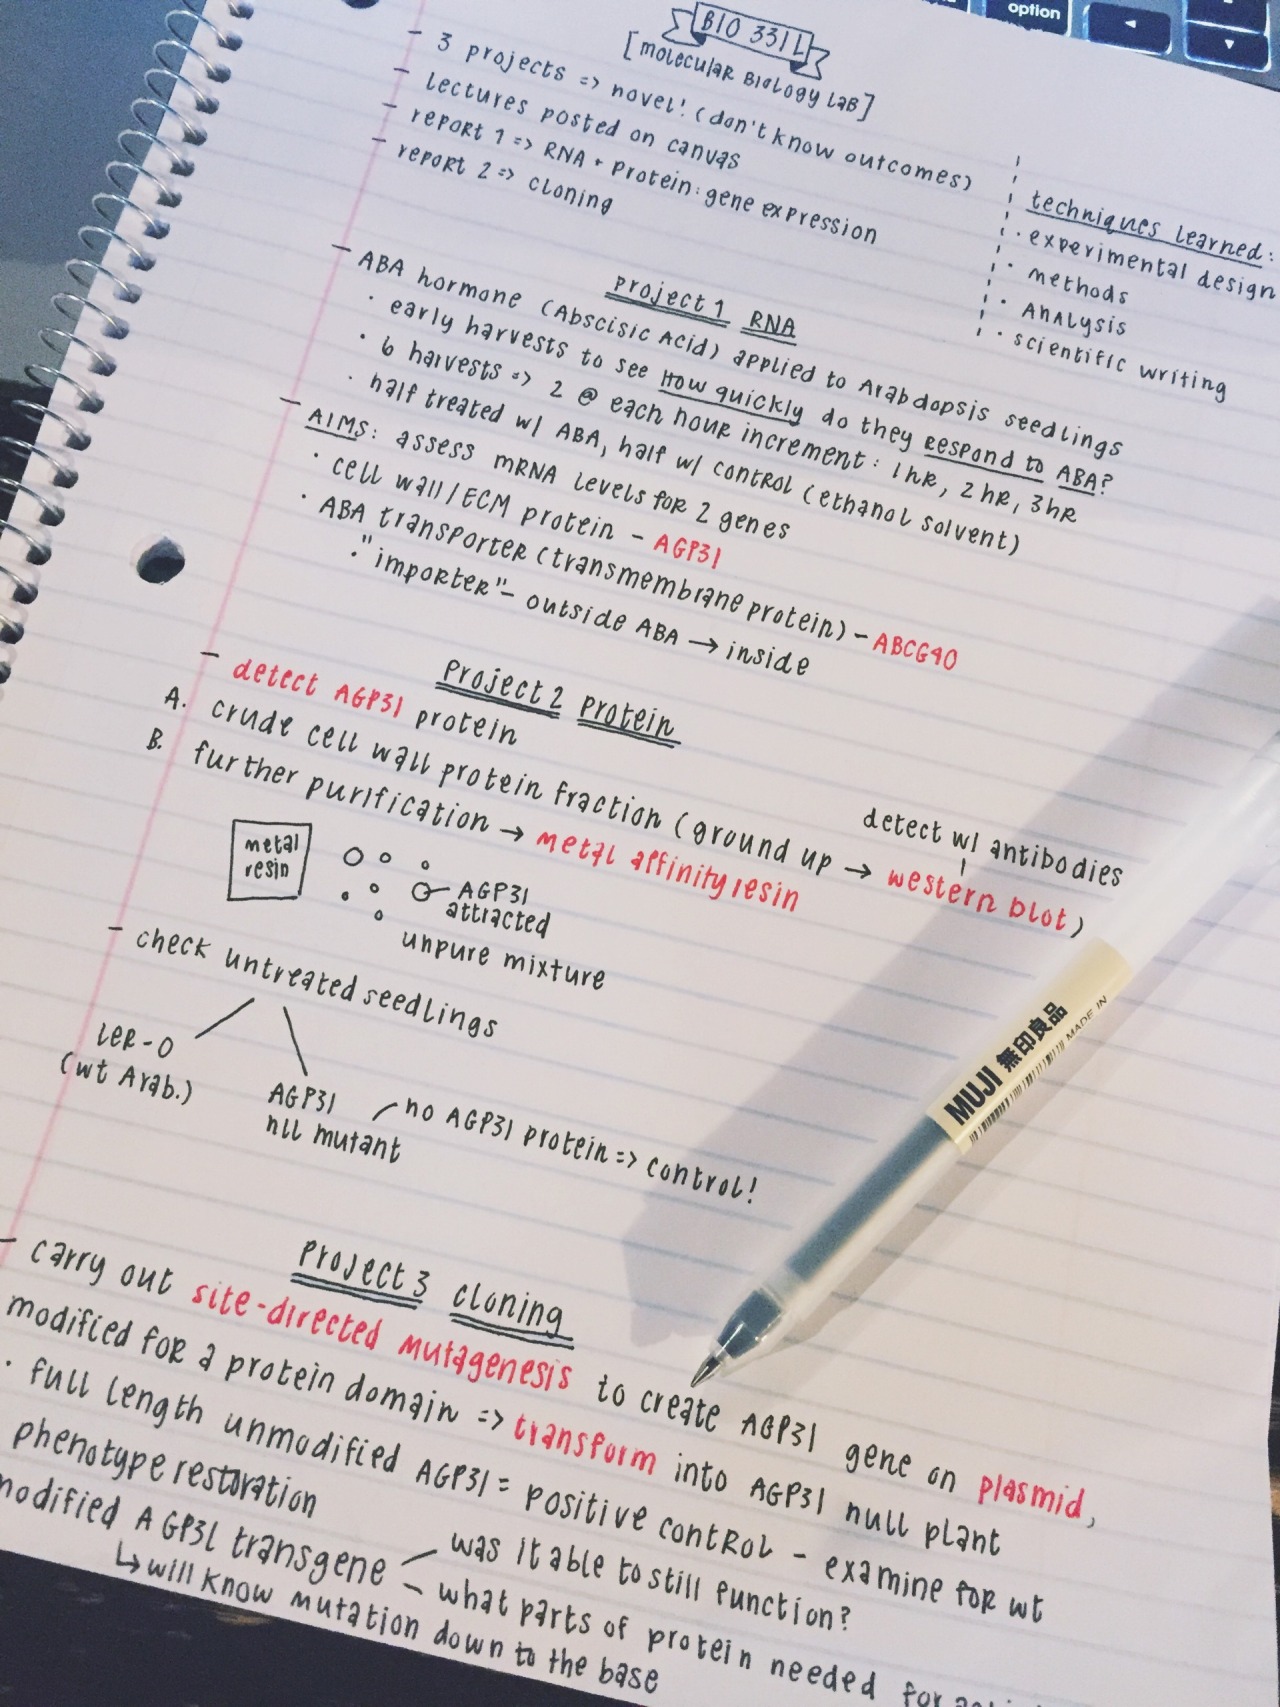 option
BIO 331L
[MOLECULAR BIOLOGY LAB]
- 3 projects => novel! (don't know outcomes)
- Lectures posted on canvas
- report 1 => RNA + Protein: gene expression
- report 2 => cloning
techniques learned:
· experimental design
· methods
· Analysis
· scientific writing
Project 1 RNA
- ABA hormone (Abscisic Acid) applied to Arabdopsis seedlings
· early harvests to see How quickly do they respond to ABA?
· 6 harvests => 2 @ each hour increment: 1hr, 2hr, 3hr
· half treated w/ ABA, half w/ control (ethanol solvent)
- AIMS: assess mRNA levels for 2 genes
· cell wall/ECM protein - AGP31
· ABA transporter (transmembrane protein) - ABCG40
· "importer" - outside ABA → inside
Project 2 Protein
- detect AGP31 protein
A. crude cell wall protein fraction (ground up → western blot)
detect w/ antibodies
B. further purification → metal affinity resin
metal
resin
AGP31
attracted
unpure mixture
- check untreated seedlings
LER-0
(wt Arab.)
AGP31
nll mutant
no AGP31 protein => control!
Project 3 cloning
- carry out site-directed mutagenesis to create AGP31 gene on plasmid,
modified for a protein domain => transform into AGP31 null plant
· full length unmodified AGP31 = positive control - examine for wt
phenotype restoration
modified AGP31 transgene
was it able to still function?
what parts of protein needed for
↳ will know mutation down to the base
MUJI 無印良品
MADE IN